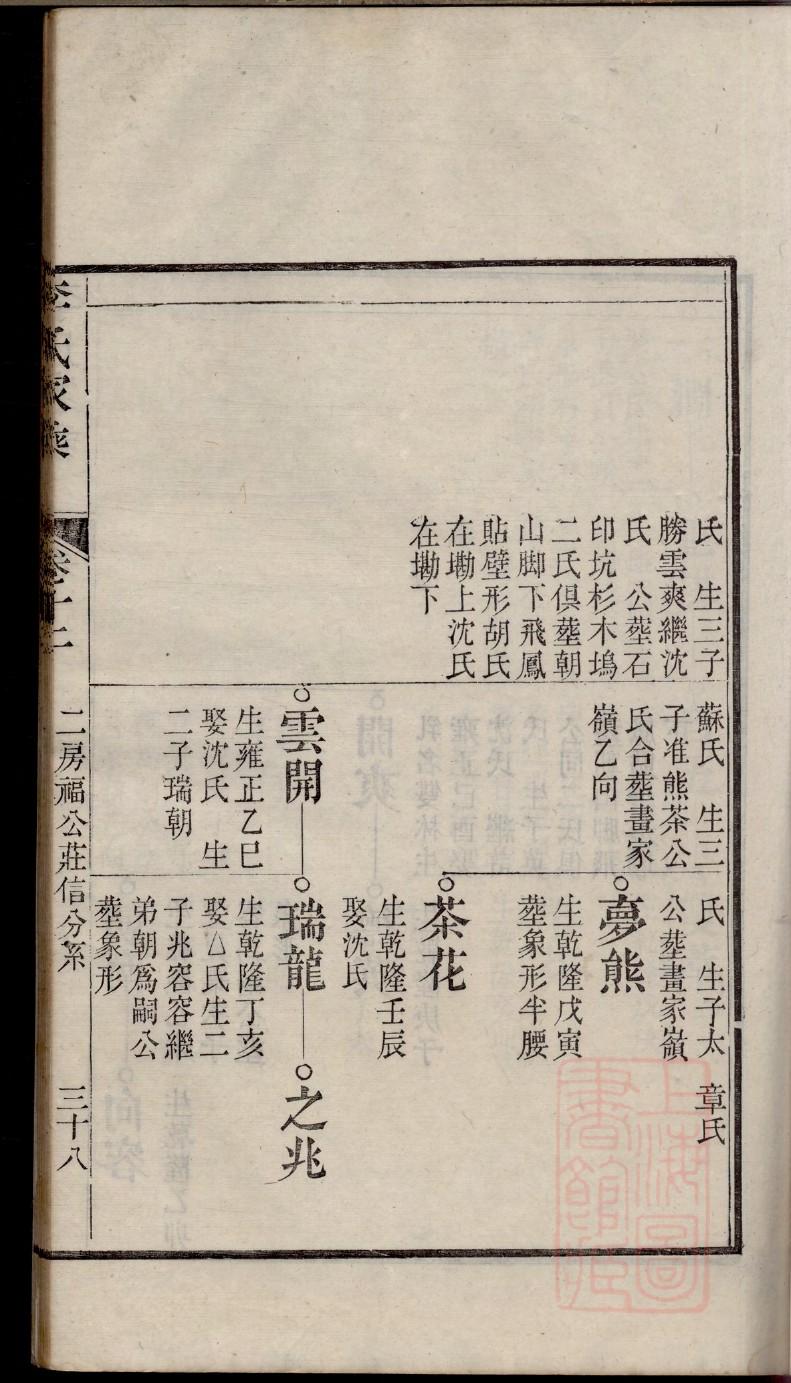 氏　生三子
勝雲爽繼沈
氏　公塟石
印坑杉木塢
二氏俱塟朝
山脚下飛鳳
貼壁形胡氏
在墈上沈氏
在墈下
蘇氏　生三
子准熊茶公
氏合塟畫家
嶺乙向
雲開
生雍正乙巳
娶沈氏　生
二子瑞朝
氏　生子太
公塟畫家嶺
夢熊
生乾隆戊寅
塟象形半腰
茶花
生乾隆壬辰
娶沈氏
瑞龍
生乾隆丁亥
娶厶氏生二
子兆容容繼
弟朝爲嗣公
塟象形
章氏
之兆
李氏家乘
卷十二
二房福公莊信分系
三十八
上海圖
書館藏